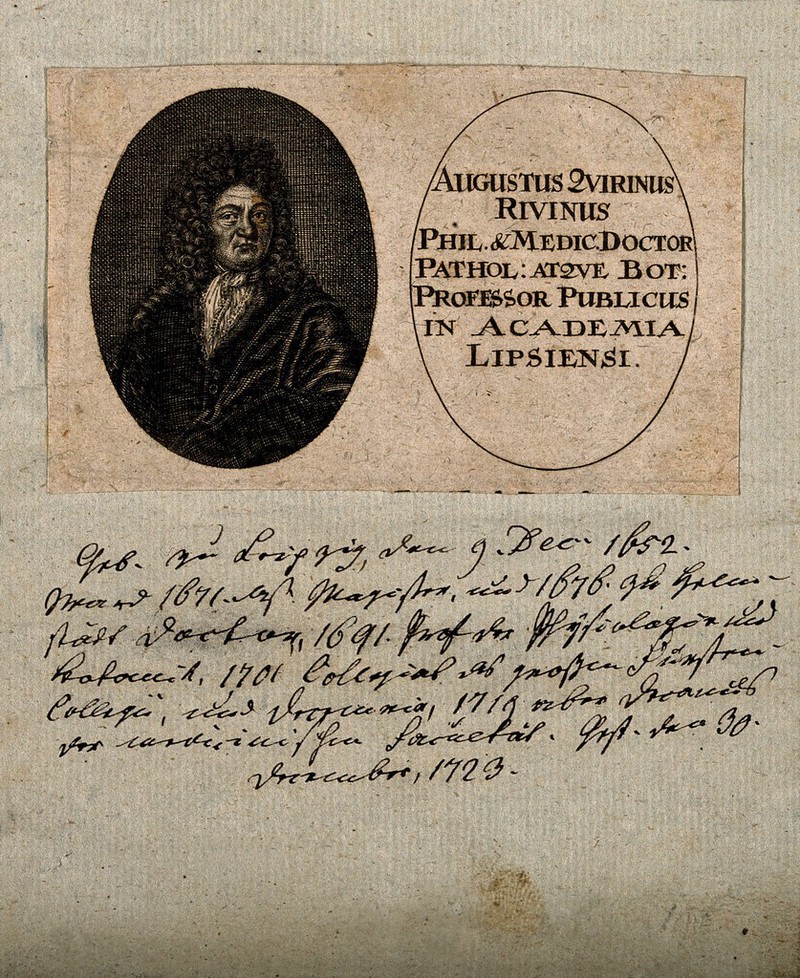 AUGUSTUS QVIRINUS
RIVINUS
PHIL. & MEDIC. DOCTOR
PATHOL: ATQVE BOT:
PROFESSOR PUBLICUS
IN ACADEMIA
LIPSIENSI.
Geb. zu Leipzig, den 9. Dec. 1652.
Ward 1671. Magister, und 1676. zu Helm-
städt Doctor, 1691. Prof. der Physiologie und
Botanik, 1701 Collegiat des großen Fürsten-
Collegii, und 1719 aber Decanus
der medicinischen Facultät. Gest. den 30.
December, 1723.